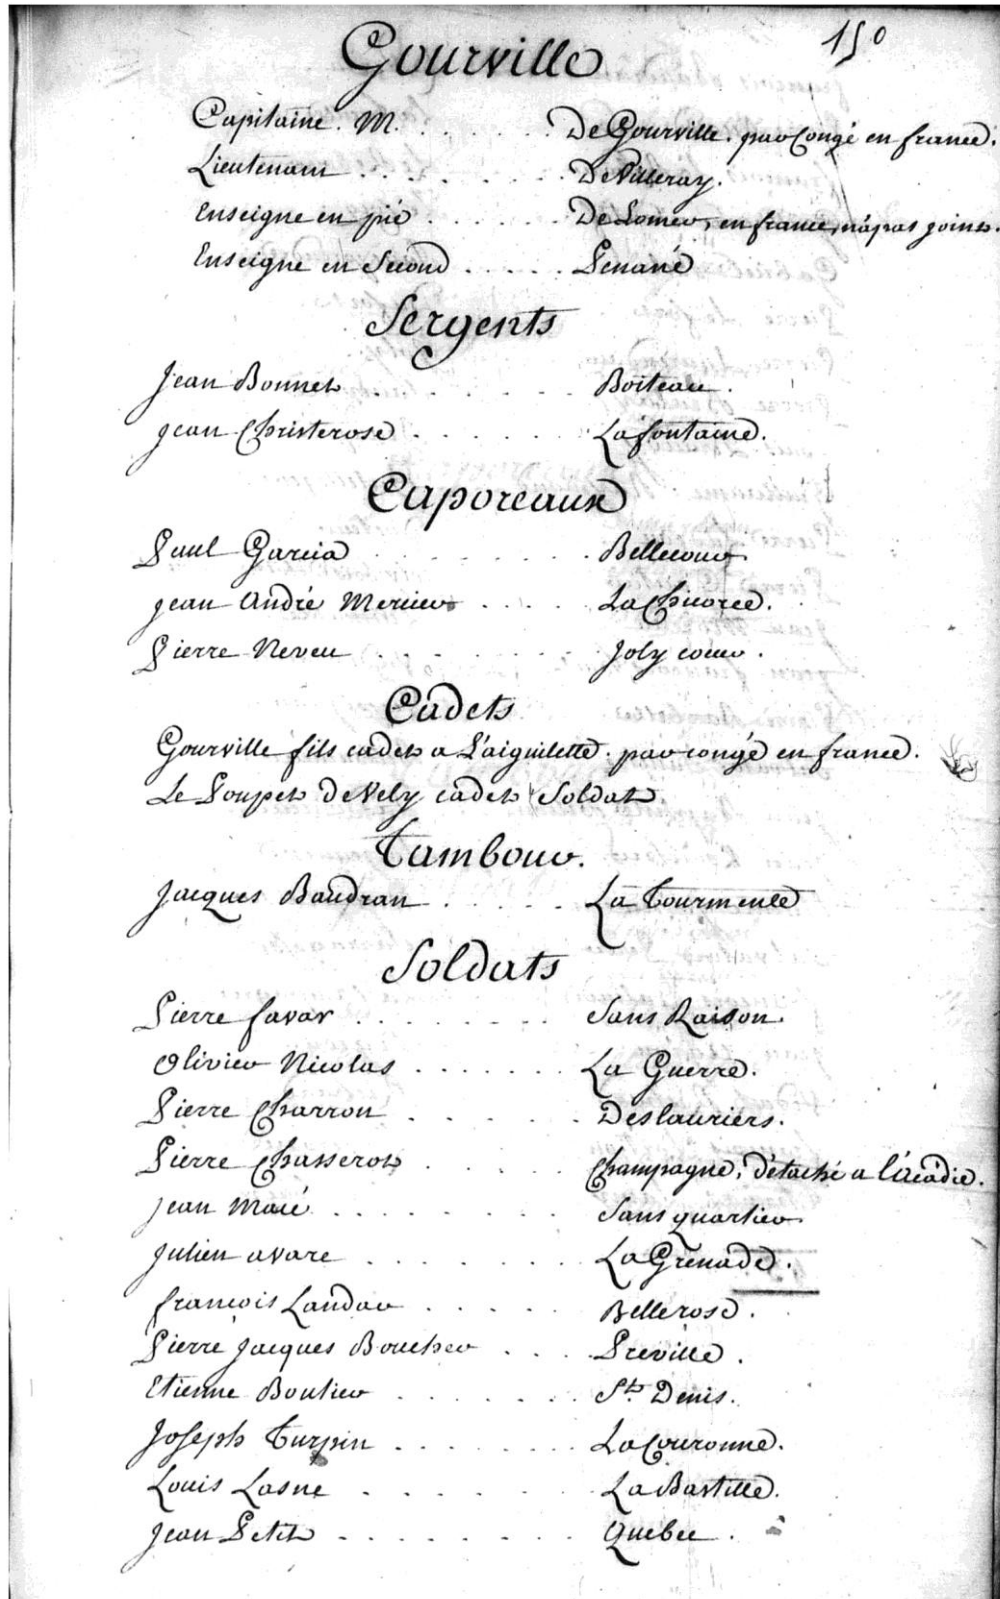 150
Gourville
Capitaine. M. . . . . . De Gourville. par Congé en france.
Lieutenant . . . . . . . De Villeray.
Enseigne en pié . . . . . . De Lomer, en france, n'a pas joint.
Enseigne en Second . . . . . Penané
Sergents
Jean Bonnet . . . . . . . Boiteau.
Jean Christerose . . . . . . Lafontaine.
Caporeaux
Paul Garcia . . . . . . . Bellecour
Jean André Mercier . . . . La Chicorée.
Pierre Neveu . . . . . . . Joly coeur.
Cadets
Gourville fils cadet a L'aiguilette. par congé en france.
Le Poupet de Vely cadet Soldat.
Tambour.
Jacques Baudran . . . . . La Tourmente
Soldats
Pierre favar . . . . . . . . Sans Raison.
Olivier Nicolas . . . . . . . La Guerre.
Pierre Charron . . . . . . Deslauriers.
Pierre Chasserot . . . . . Champagne, détaché a l'acadie.
Jean Macé . . . . . . . . Sans quartier
Julien avare . . . . . . . . La Grenade.
françois Landar . . . . . Bellerose.
Pierre Jacques Boucher . . . Préville.
Etienne Boutier . . . . . . St. Denis.
Joseph Turpin . . . . . . . La Couronne.
Louis Lasne . . . . . . . La Bastille.
Jean Petit . . . . . . . . Quebec.